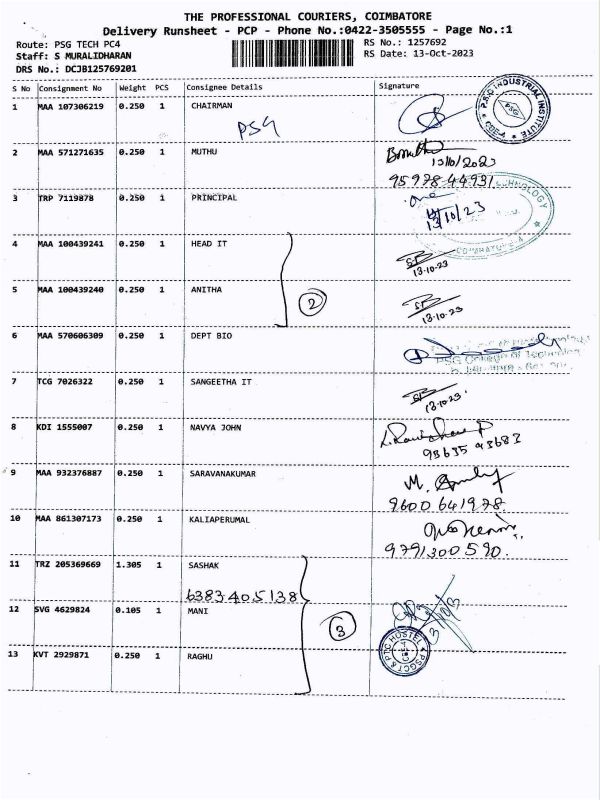 THE PROFESSIONAL COURIERS, COIMBATORE
Delivery Runsheet - PCP - Phone No.:0422-3505555 - Page No.:1
Route: PSG TECH PC4
RS No.: 1257692
Staff: S MURALIDHARAN
RS Date: 13-Oct-2023
DRS No.: DCJB125769201
S No Consignment No Weight PCS Consignee Details Signature
1 MAA 107306219 0.250 1 CHAIRMAN
PSG
P.S.G INDUSTRIAL INSTITUTE
PSG
2 MAA 571271635 0.250 1 MUTHU
13/10/2023
95978 44931
3 TRP 7119878 0.250 1 PRINCIPAL
13/10/23
COIMBATORE-4
4 MAA 100439241 0.250 1 HEAD IT
13-10-23
5 MAA 100439240 0.250 1 ANITHA
2
13-10-23
6 MAA 570606309 0.250 1 DEPT BIO
PSG College of Technology
7 TCG 7026322 0.250 1 SANGEETHA IT
13-10-23
8 KDI 1555007 0.250 1 NAVYA JOHN
93635 43683
9 MAA 932376887 0.250 1 SARAVANAKUMAR
9600 641978
10 MAA 861307173 0.250 1 KALIAPERUMAL
9791300590.
11 TRZ 205369669 1.305 1 SASHAK
6383405138
12 SVG 4629824 0.105 1 MANI
3
PSGCT & PTC HOSTEL
13 KVT 2929871 0.250 1 RAGHU